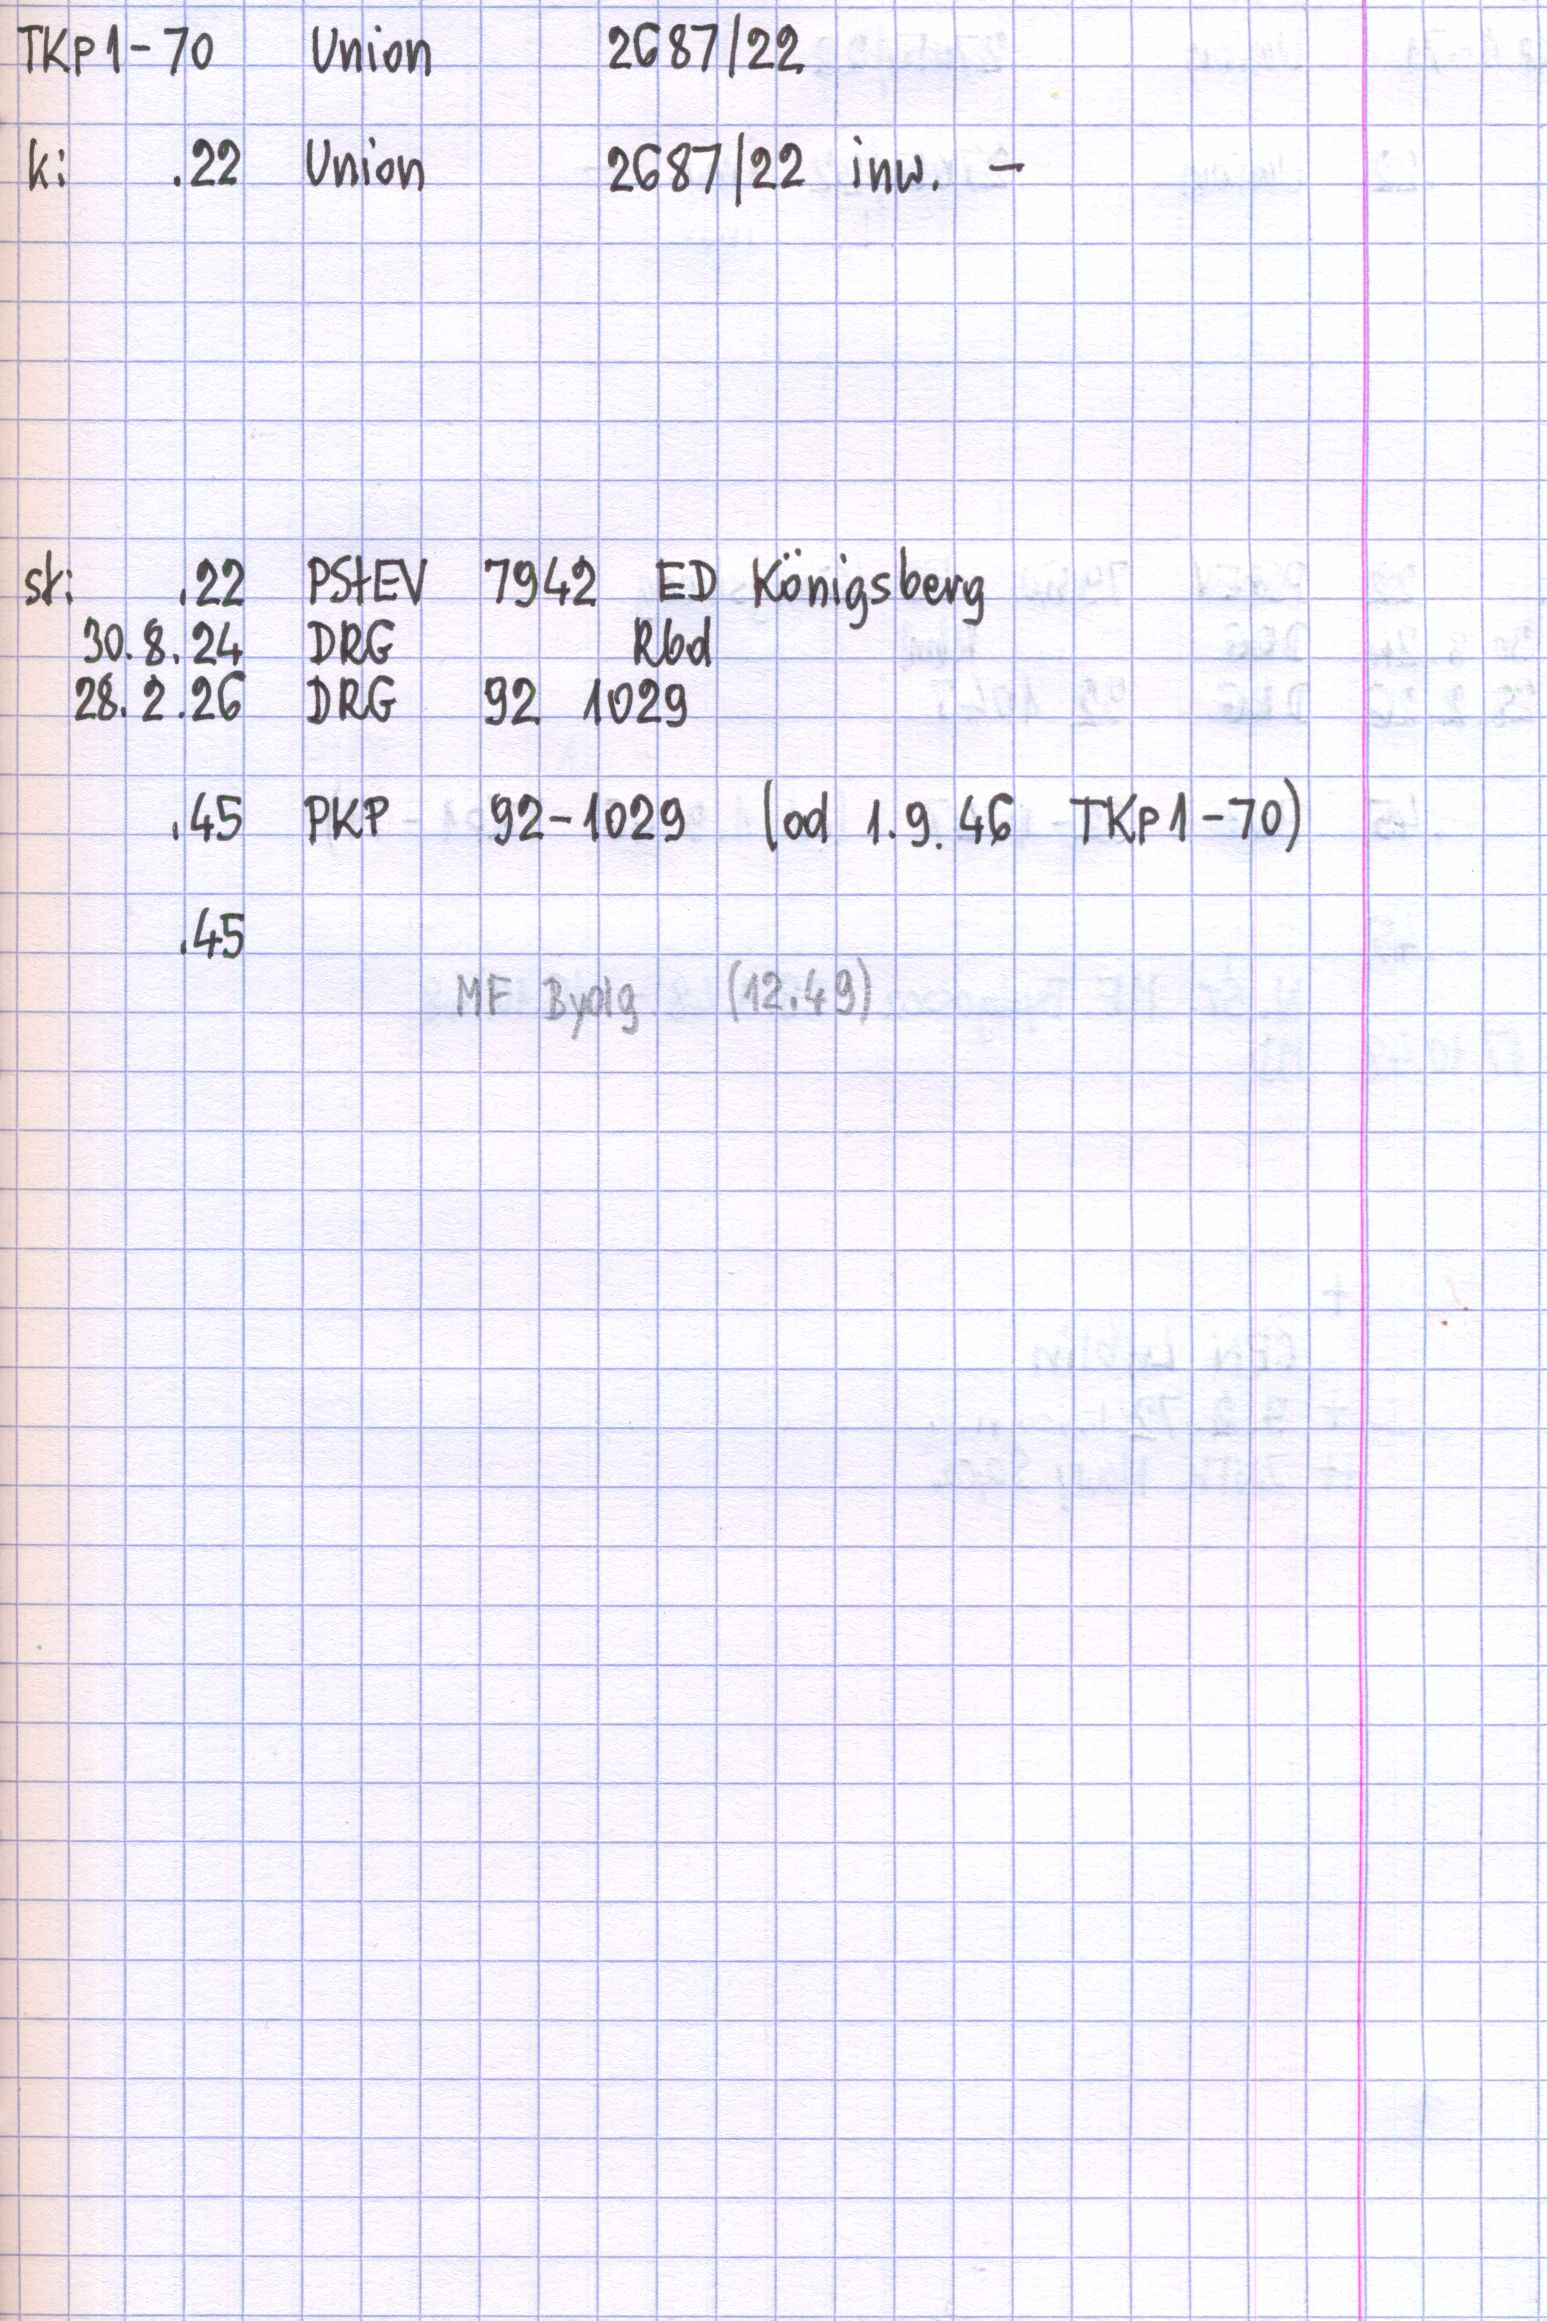 TKp1-70 Union 2687/22
k: .22 Union 2687/22 inw. -
st: .22 PStEV 7942 ED Königsberg
30.8.24 DRG Rbd
28.2.26 DRG 92 1029
.45 PKP 92-1029 (od 1.9.46 TKp1-70)
.45
MF Bydg. (12.49)